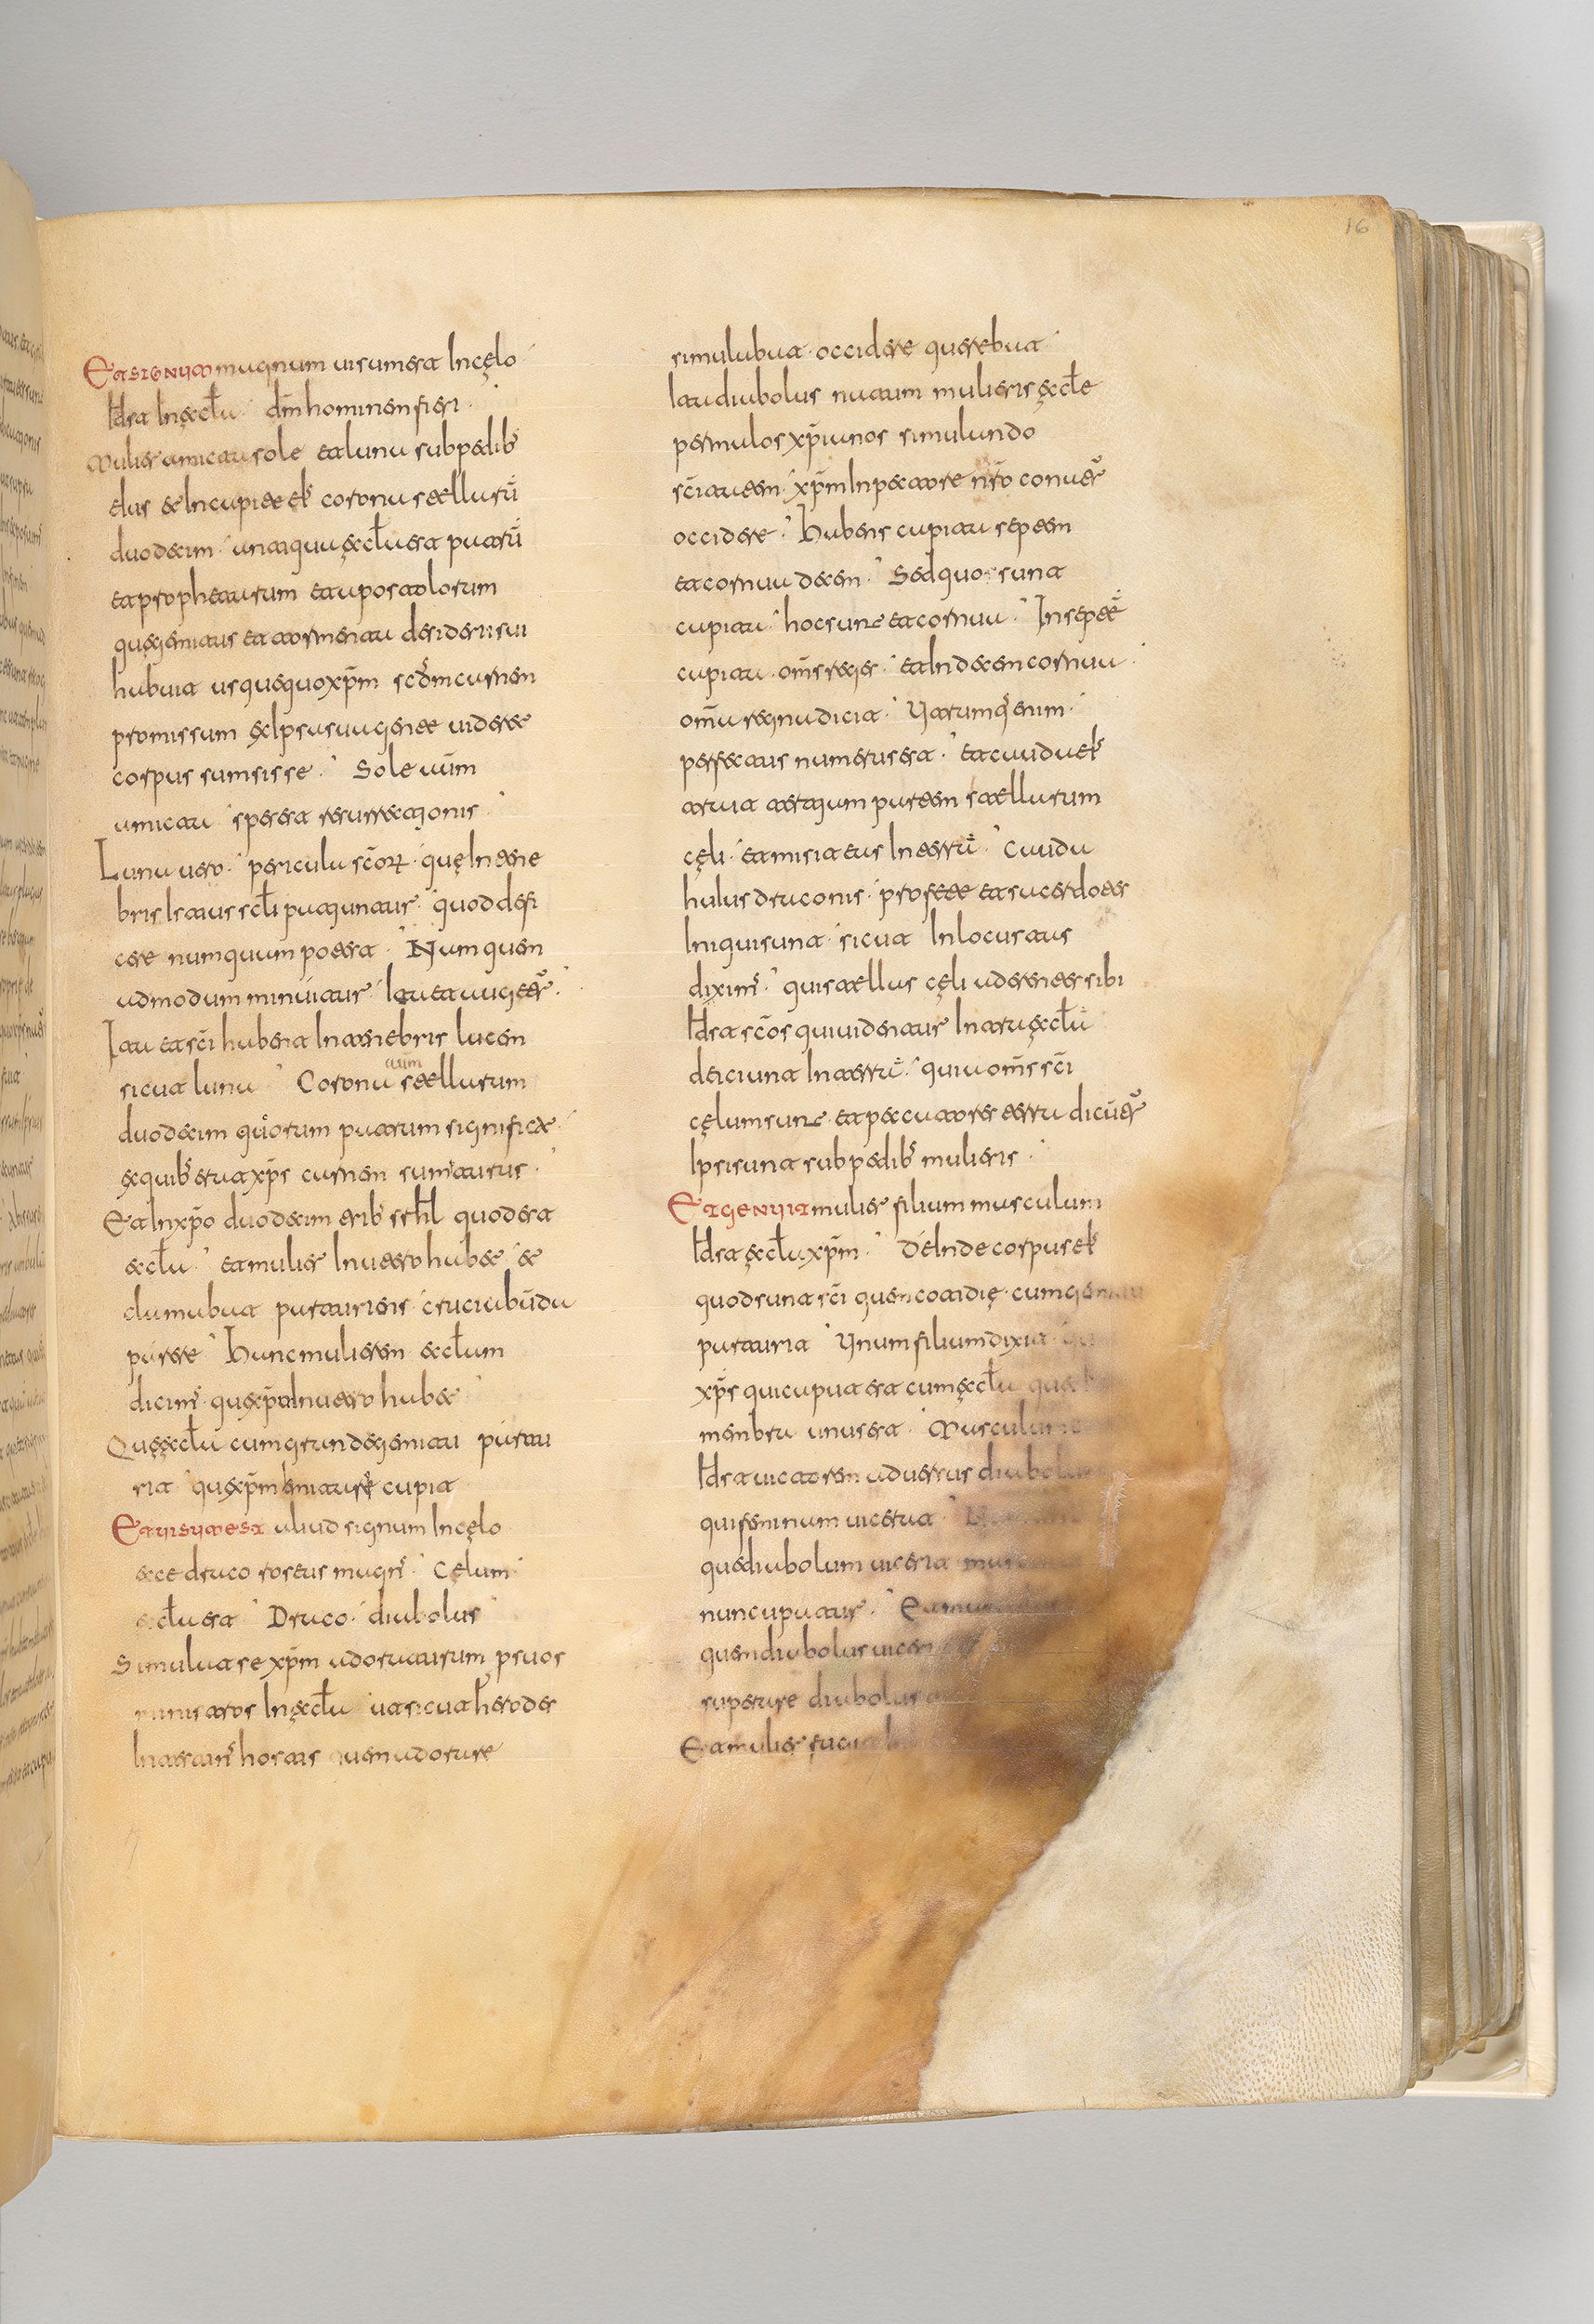 Et signum magnum uisum est In cęlo
Id est In ęcl̄a dm̄ hominem fieri
Mulier amicta sole et luna sub pedib'
eius et In capite eius corona stellarū
duodecim antiqua ęcl̄a est patrū
et prophetarum et apostolorum
que gemitus et tormenta desiderii sui
habuit usquequo xp̄m scd̄m carnem
promissum ex Ipsa sua gente uideret
corpus sumsisse Sole
amicta spes est resurrectionis
Luna uero pericula sc̄orum que In tene
bris Istius scl̄i quod defi
cere numquam potest Nam quem
admodum minuitur Ita et augetur
Ita et sc̄i habent In tenebris lucem
sicut luna Corona autem stellarum
duodecim patrum significat
ex quib' erat xp̄s carnem sumturus
Et In xp̄o duodecim trib' srhl quod est
ecl̄a et mulier In utero habet et
clamabat parturiens
parere Hanc mulierem ecl̄am
dicim' que xp̄m In utero habet
Que ecl̄a cum grande gemitu partu
rit que xp̄m cupit
Et uisum est aliud signum In cęlo
ecce draco roseus magn' Cęlum
ecl̄a est Draco diabolus
Simulat se xp̄m adoraturum p suos
ministros In ęcl̄a ut sicut herodes
quem adorare
simulabat occidere querebat
Ita diabolus natum mulieris ęcl̄e
per malos xp̄ianos simulando
sc̄itatem xp̄m In pectore nr̄o conuer̄
occidere Habens capita septem
et cornua decem Sed quot sunt
capita hoc sunt et cornua In septē
capita om̄s reges et In decem cornua
om̄a regna dicit Utrumq' enim
perfectus numerus est et cauda eius
trait tertiam partem stellarum
cęli et misit eas In terrā Cauda
huius draconis profete et sacerdotes
Iniqui sunt sicut In locustis
dixim' qui stellas cęli adherentes sibi
Id est sc̄os qui uidentur Intra ęcl̄ā
deiciunt In terrā quia om̄s sc̄i
cęlum sunt et peccatores terra dicūtur
Ipsi sunt sub pedib' mulieris
Et genuit mulier filium masculum
Id est ęcl̄a xp̄m Deinde corpus eius
quod sunt sc̄i quem cotidię cum gemitu
parturit Unum filium dixit
xp̄s qui caput est cum ęcl̄a
membra unus est Masculum
Id est uictorem aduersus diabolum
qui feminam uicerat
que diabolum uicerit
nuncupatur Et
quem diabolus
superare diabolus
Et mulier